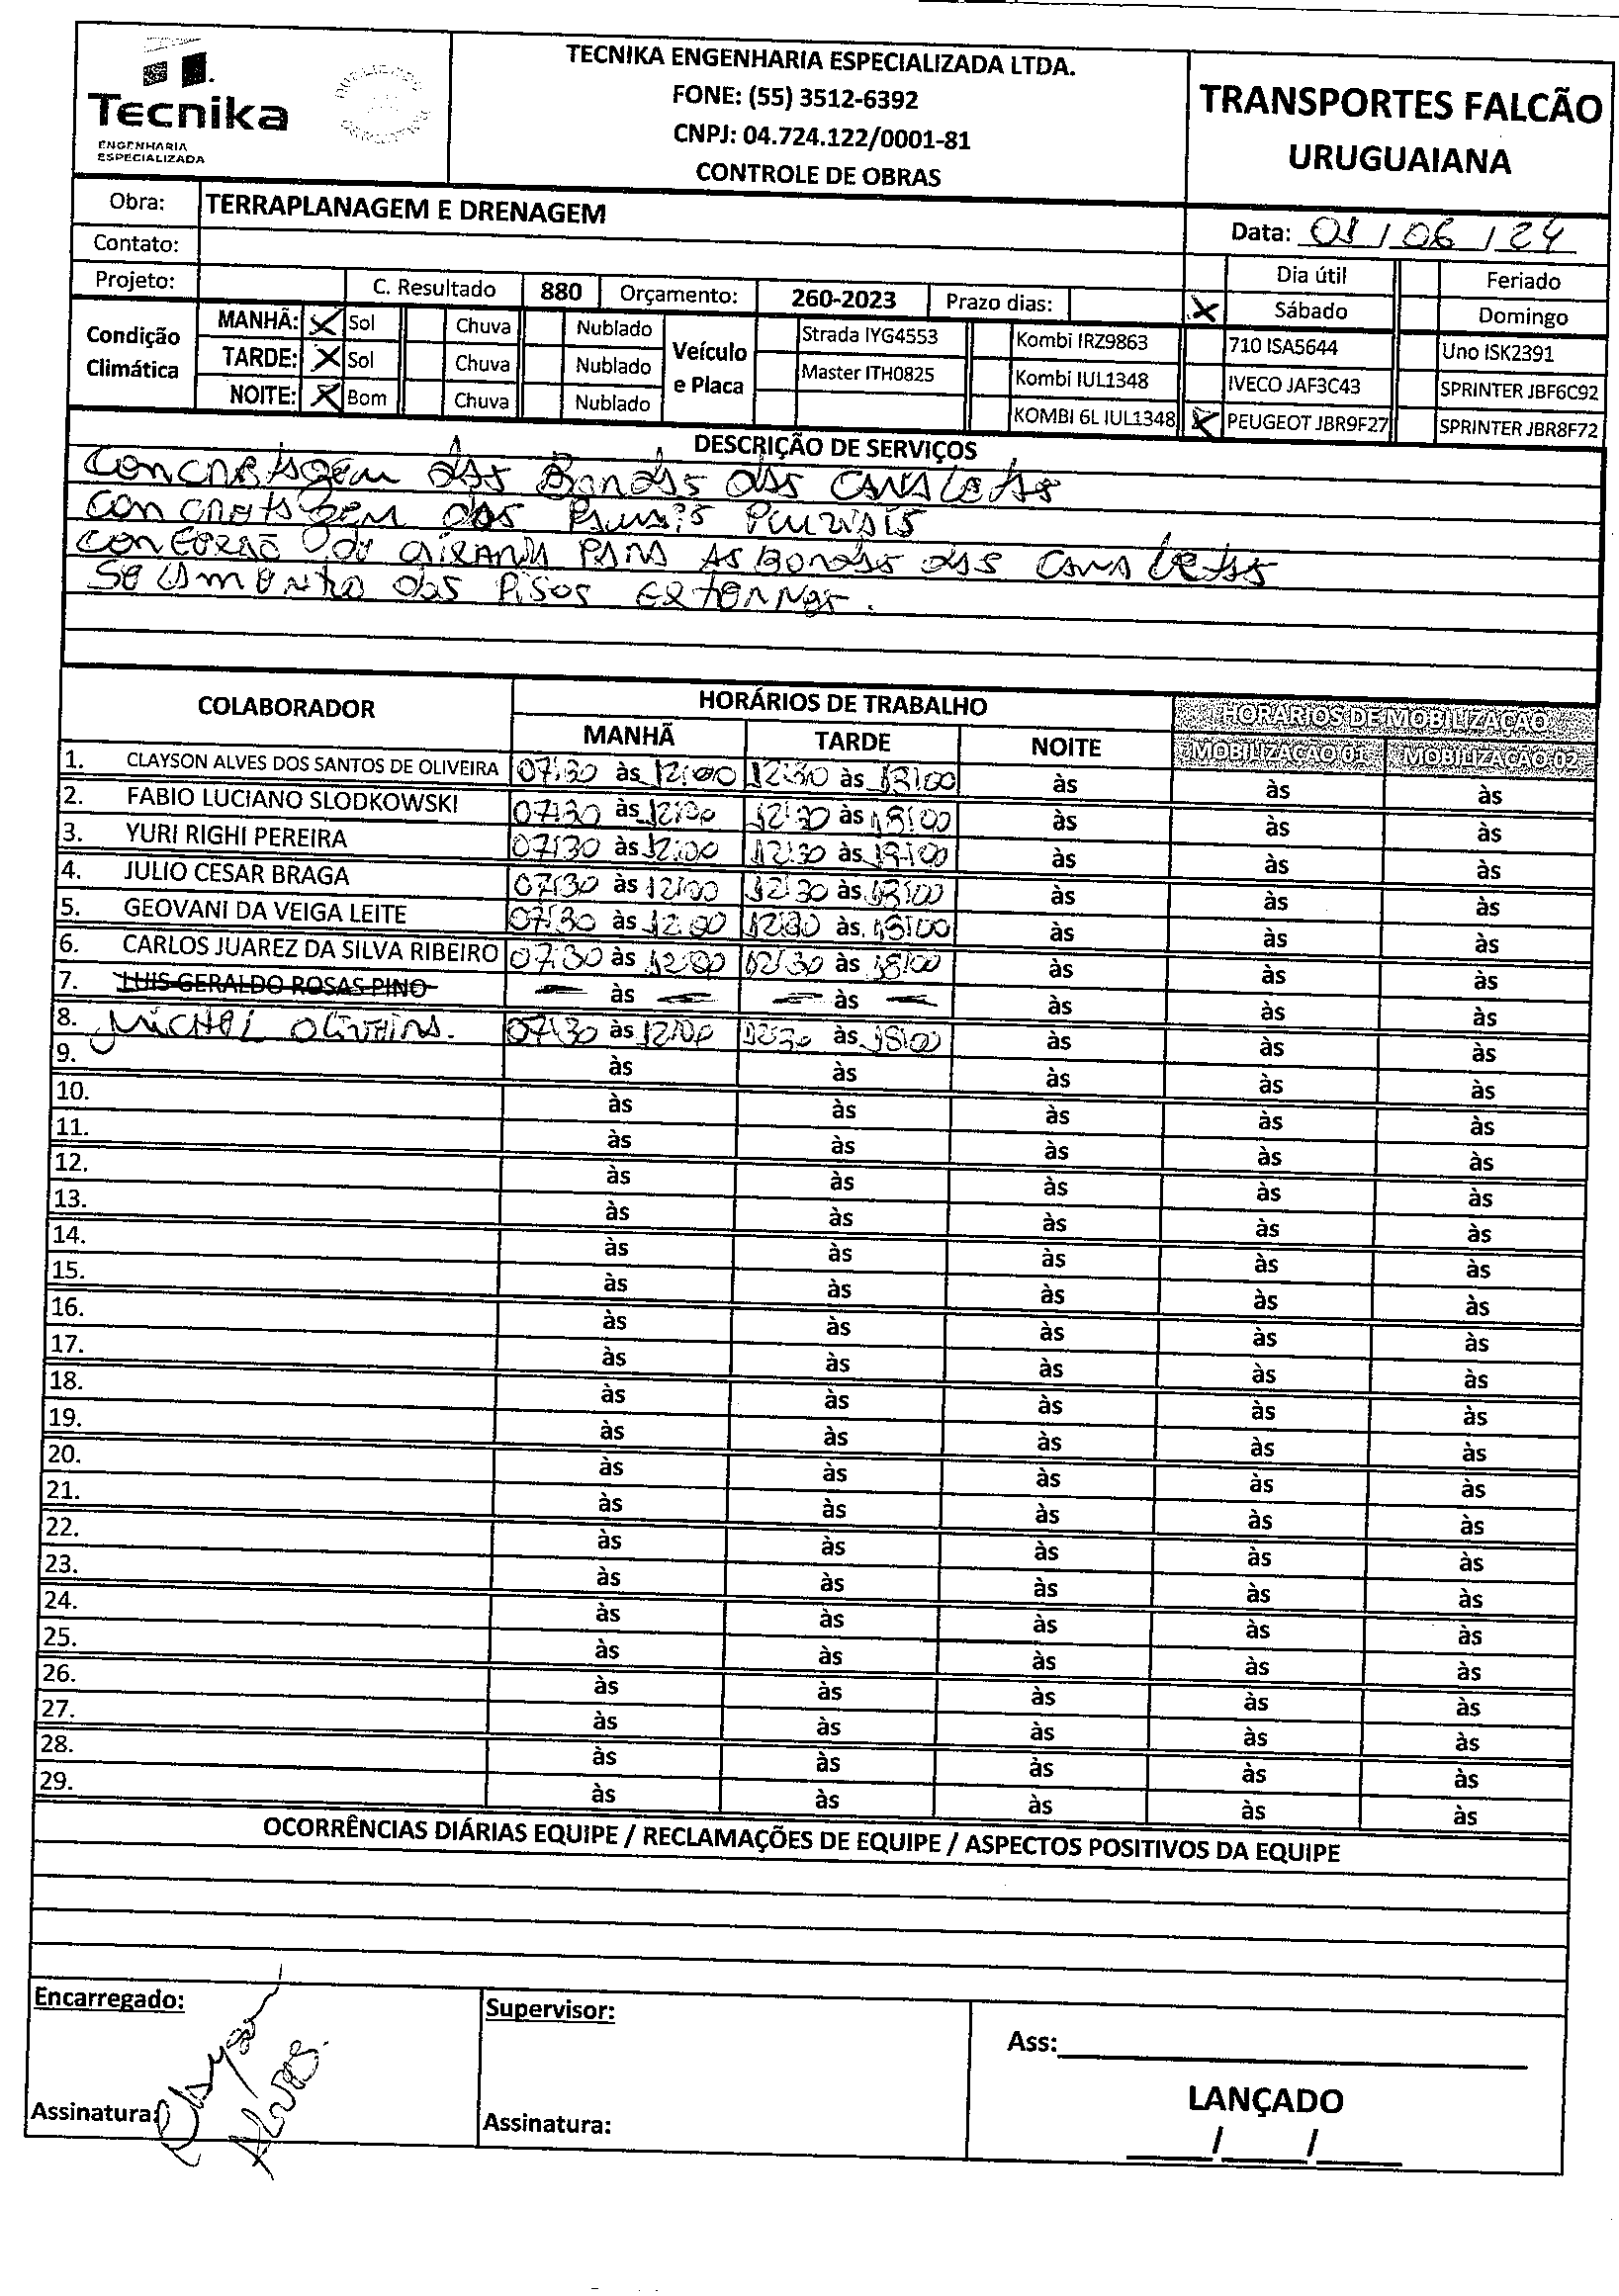 Tecnika
ENGENHARIA
ESPECIALIZADA
TECNIKA ENGENHARIA ESPECIALIZADA LTDA.
FONE: (55) 3512-6392
CNPJ: 04.724.122/0001-81
CONTROLE DE OBRAS
TRANSPORTES FALCÃO
URUGUAIANA
Obra: TERRAPLANAGEM E DRENAGEM
Data: 01 / 06 / 24
Contato:
Projeto: C. Resultado 880 Orçamento: 260-2023 Prazo dias:
Dia útil Feriado
X Sábado Domingo
Condição Climática
MANHÃ: X Sol Chuva Nublado
TARDE: X Sol Chuva Nublado
NOITE: X Bom Chuva Nublado
Veículo e Placa
Strada IYG4553 Kombi IRZ9863 710 ISA5644 Uno ISK2391
Master ITH0825 Kombi IUL1348 IVECO JAF3C43 SPRINTER JBF6C92
KOMBI 6L IUL1348 X PEUGEOT JBR9F27 SPRINTER JBR8F72
DESCRIÇÃO DE SERVIÇOS
Concretagem das Bordas das Canaletas
Concretagem dos Pluviais
das Canaletas
dos Pisos
COLABORADOR HORÁRIOS DE TRABALHO HORÁRIOS DE MOBILIZAÇÃO
MANHÃ TARDE NOITE MOBILIZAÇÃO 01 MOBILIZAÇÃO 02
1. CLAYSON ALVES DOS SANTOS DE OLIVEIRA 07:30 às 12:00 12:30 às 18:00 às às às
2. FABIO LUCIANO SLODKOWSKI 07:30 às 12:00 12:30 às 18:00 às às às
3. YURI RIGHI PEREIRA 07:30 às 12:00 12:30 às às às às
4. JULIO CESAR BRAGA 07:30 às 12:00 12:30 às 18:00 às às às
5. GEOVANI DA VEIGA LEITE 07:30 às 12:00 12:30 às 18:00 às às às
6. CARLOS JUAREZ DA SILVA RIBEIRO 07:30 às 12:00 12:30 às 18:00 às às às
7. LUIS GERALDO ROSAS PINO — às — — às — às às às
8. Michel Oliveira. 07:30 às 12:00 12:30 às 18:00 às às às
9. às às às às às
10. às às às às às
11. às às às às às
12. às às às às às
13. às às às às às
14. às às às às às
15. às às às às às
16. às às às às às
17. às às às às às
18. às às às às às
19. às às às às às
20. às às às às às
21. às às às às às
22. às às às às às
23. às às às às às
24. às às às às às
25. às às às às às
26. às às às às às
27. às às às às às
28. às às às às às
29. às às às às às
OCORRÊNCIAS DIÁRIAS EQUIPE / RECLAMAÇÕES DE EQUIPE / ASPECTOS POSITIVOS DA EQUIPE
Encarregado: Supervisor: Ass:
Clayson Alves.
LANÇADO
Assinatura: Assinatura: / /